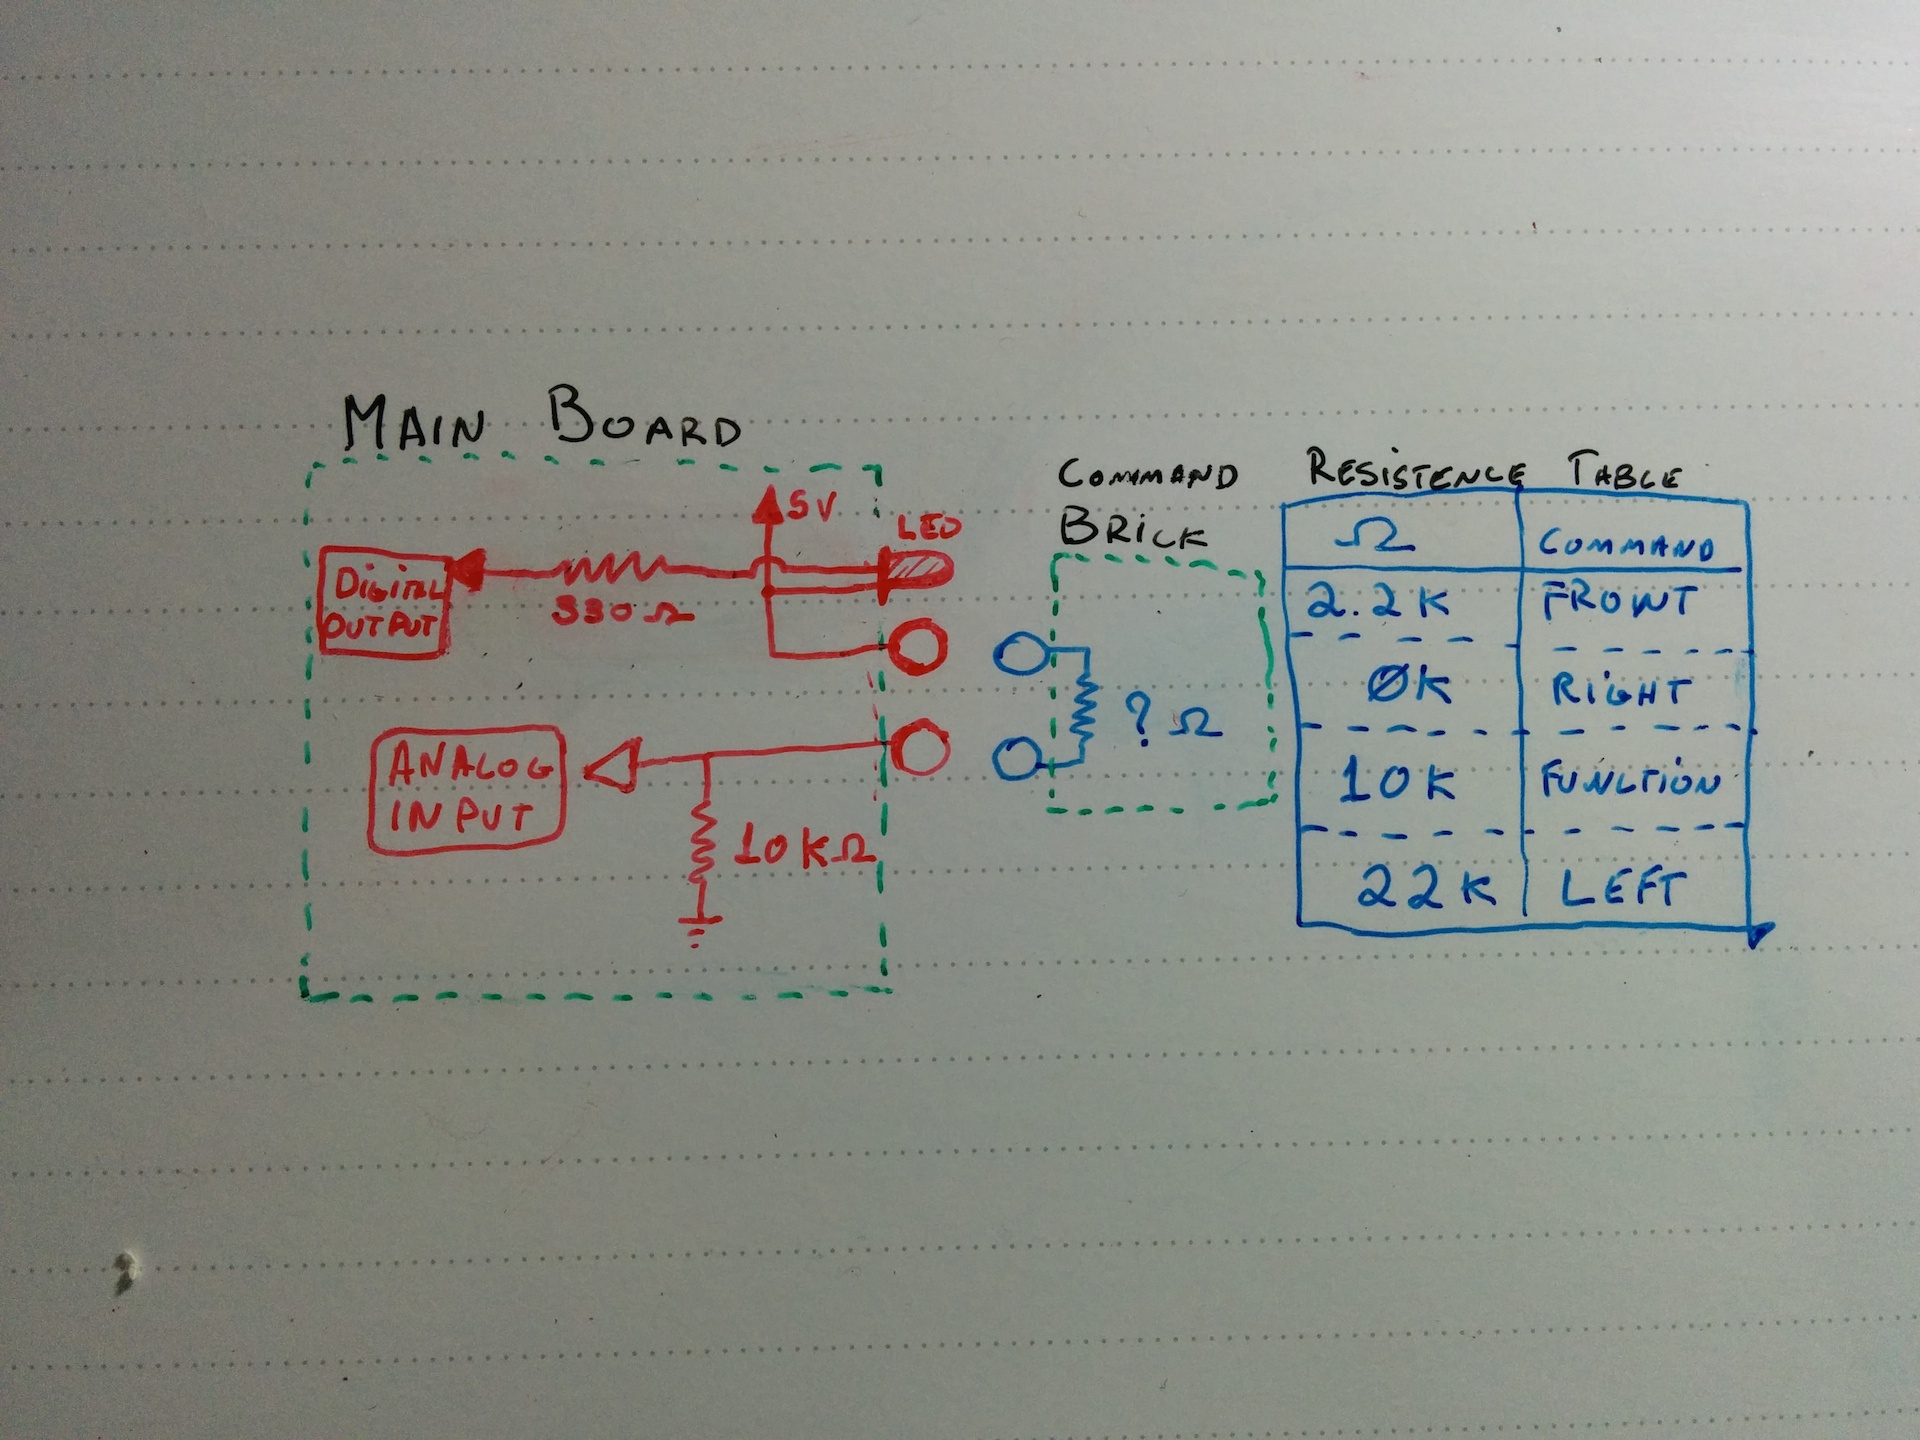 MAIN BOARD
5V
LED
DIGITAL
OUTPUT
330 Ω
ANALOG
INPUT
10KΩ
COMMAND
BRICK
? Ω
RESISTENCE TABLE
Ω COMMAND
2.2K FRONT
0K RIGHT
10K FUNCTION
22K LEFT